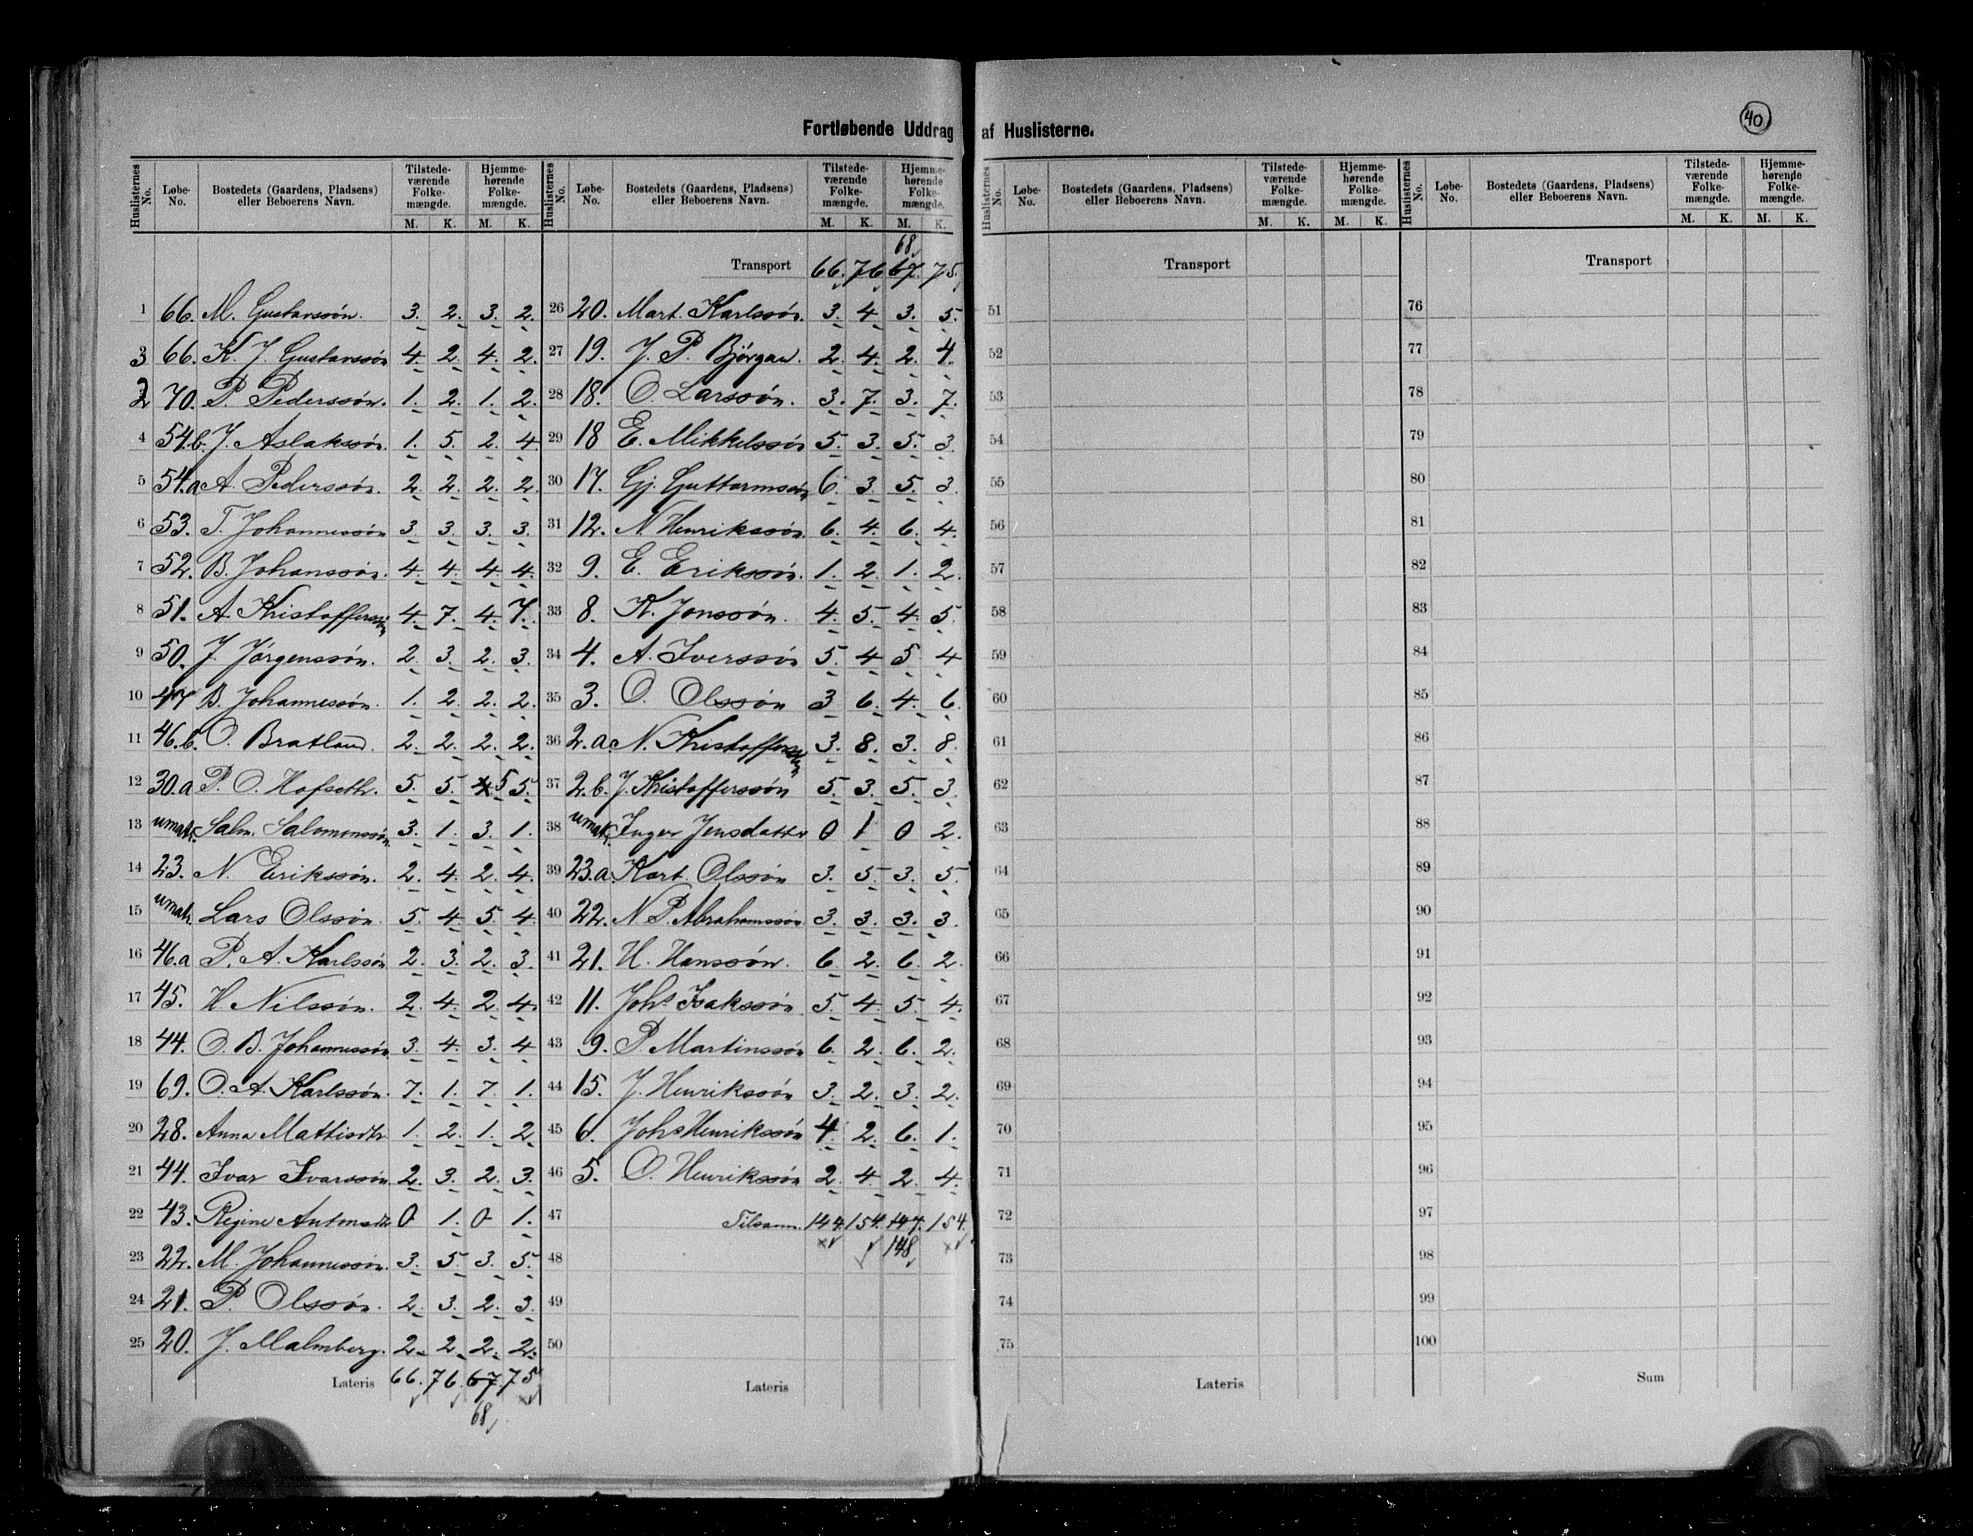 Fortløbende Uddrag af Huslisterne.
40
Huslisternes No. Løbe-No. Bostedets (Gaardens, Pladsens) eller Beboerens Navn. Tilstedeværende Folkemængde. M. K. Hjemmehørende Folkemængde. M. K.
1 66. M. Gustavssøn. 3. 2. 3. 2.
3 66. K. J. Gustavssøn 4. 2. 4. 2.
2 70. P. Pederssøn. 1. 2. 1. 2.
4 54.b. J. Aslakssøn. 1. 5. 2. 4
5 54.a A. Pederssøn. 2. 2. 2. 2.
6 53. T. Johannessøn 3. 3. 3. 3.
7 52. B. Johanssøn. 4. 4. 4. 4.
8 51. A. Kristofferssøn 4. 7. 4. 7.
9 50. J. Jørgenssøn. 2. 3. 2. 3.
10 47 B. Johannessøn. 1. 2. 2. 2.
11 46.b. O. Bratland. 2. 2. 2. 2.
12 30.a P. O. Hofseth. 5. 5. 4 5 5.
13 umatr. Salm. Salomonssøn 3. 1. 3. 1.
14 23. N. Erikssøn. 2. 4. 2. 4.
15 umatr. Lars Olssøn. 5. 4. 5. 4.
16 46.a P. A. Karlssøn 2. 3. 2. 3.
17 45. H. Nilssøn. 2. 4. 2. 4.
18 44. O. B. Johannessøn 3. 4. 3. 4
19 69. O. A. Karlssøn. 7. 1. 7. 1.
20 28. Anna Mattisdtr 1. 2. 1. 2
21 44. Ivar Ivarssøn 2. 3. 2. 3.
22 43. Regine Antonsdtr 0 1. 0 1.
23 22. M. Johannessøn. 3. 5. 3. 5.
24 21. P. Olssøn. 2. 3. 2. 3.
25 20. J. Malmberg. 2. 2. 2. 2.
Lateris 66. 76. 67 75
68
Huslisternes No. Løbe-No. Bostedets (Gaardens, Pladsens) eller Beboerens Navn. Tilstedeværende Folkemængde. M. K. Hjemmehørende Folkemængde. M. K.
68
Transport 66. 76. 67. 75.
26 20. Mart. Karlssøn. 3. 4. 3. 5.
27 19. J. P. Bjørgan. 2. 4. 2. 4.
28 18. O. Larssøn. 3. 7. 3. 7.
29 18 E. Mikkelssøn 5. 3. 5. 3.
30 17. Gj. Guttormssøn 6. 3. 5. 3.
31 12. N. Henrikssøn. 6. 4. 6. 4.
32 9. E. Erikssøn. 1. 2. 1. 2.
33 8. K. Jonssøn. 4. 5. 4. 5.
34 4. A. Iverssøn 5. 4 5. 4
35 3. O. Olssøn 3 6. 4. 6.
36 2.a. N. Kristofferssøn 3. 8. 3. 8.
37 2.b. J. Kristofferssøn 5. 3. 5. 3.
38 umatr. Inger Jensdattr 0 1 0 2.
39 23.a. Kart. Olssøn 3. 5. 3. 5.
40 22. N. P. Abrahamssøn 3. 3. 3. 3.
41 21. H. Hanssøn. 6. 2. 6. 2.
42 11. Johs. Isakssøn 5. 4. 5. 4.
43 9. P. Martinssøn 6. 2. 6. 2.
44 15. J. Henrikssøn 3. 2. 3. 2.
45 6. Johs Henrikssøn 4. 2. 6. 1.
46 5. O. Henrikssøn 2. 4. 2. 4.
47 Tilsam. 144. 154. 147. 154.
148
48
49
50
Lateris
Huslisternes No. Løbe-No. Bostedets (Gaardens, Pladsens) eller Beboerens Navn. Tilstedeværende Folkemængde. M. K. Hjemmehørende Folkemængde. M. K.
Transport
51
52
53
54
55
56
57
58
59
60
61
62
63
64
65
66
67
68
69
70
71
72
73
74
75
Lateris
Huslisternes No. Løbe-No. Bostedets (Gaardens, Pladsens) eller Beboerens Navn. Tilstedeværende Folkemængde. M. K. Hjemmehørende Folkemængde. M. K.
Transport
76
77
78
79
80
81
82
83
84
85
86
87
88
89
90
91
92
93
94
95
96
97
98
99
100
Sum